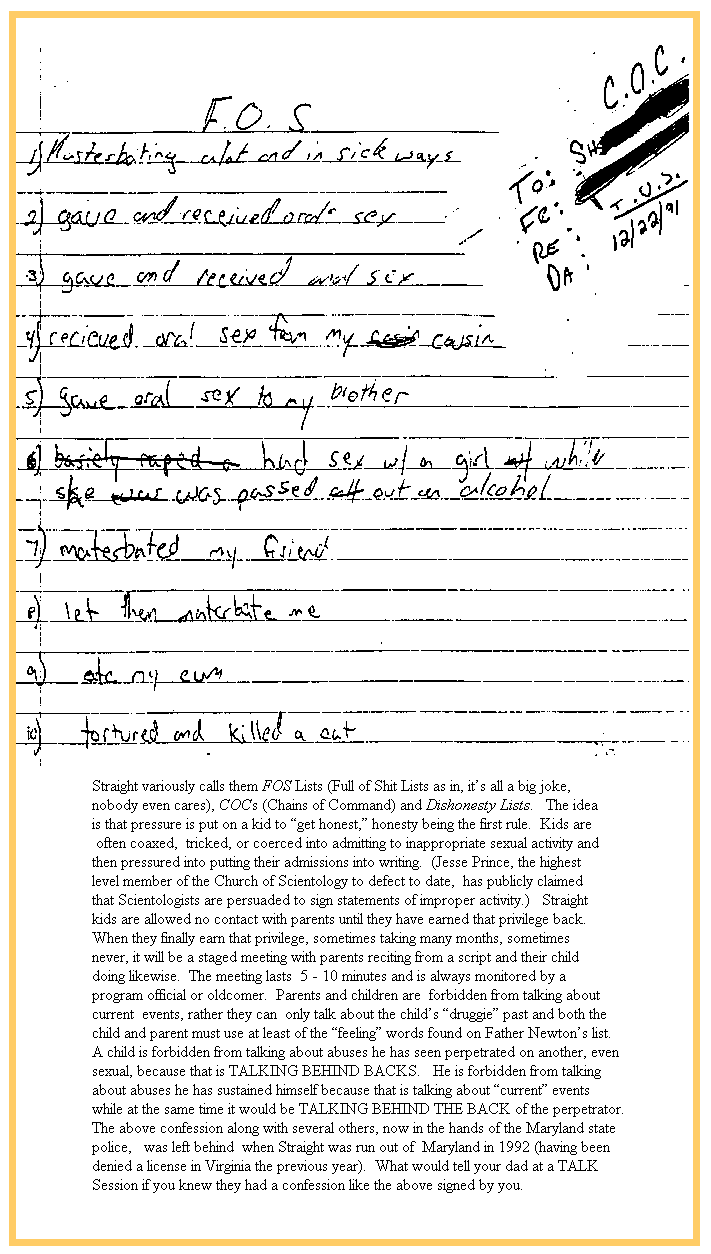 C.O.C.
F.O.S
To: SH
FR:
RE: T.U.S.
DA: 12/22/91
1) Musterbating alot and in sick ways
2) gave and received oral sex
3) gave and received anal sex
4) recieved oral sex from my cousin
5) gave oral sex to my brother
6) basicly raped a had sex w/ a girl while
she was was passed out on alcohol
7) materbated my friend
8) let them materbate me
9) ate my cum
10) tortured and killed a cat
Straight variously calls them FOS Lists (Full of Shit Lists as in, it's all a big joke,
nobody even cares), COCs (Chains of Command) and Dishonesty Lists. The idea
is that pressure is put on a kid to “get honest,” honesty being the first rule. Kids are
often coaxed, tricked, or coerced into admitting to inappropriate sexual activity and
then pressured into putting their admissions into writing. (Jesse Prince, the highest
level member of the Church of Scientology to defect to date, has publicly claimed
that Scientologists are persuaded to sign statements of improper activity.) Straight
kids are allowed no contact with parents until they have earned that privilege back.
When they finally earn that privilege, sometimes taking many months, sometimes
never, it will be a staged meeting with parents reciting from a script and their child
doing likewise. The meeting lasts 5 - 10 minutes and is always monitored by a
program official or oldcomer. Parents and children are forbidden from talking about
current events, rather they can only talk about the child's “druggie” past and both the
child and parent must use at least of the “feeling” words found on Father Newton's list.
A child is forbidden from talking about abuses he has seen perpetrated on another, even
sexual, because that is TALKING BEHIND BACKS. He is forbidden from talking
about abuses he has sustained himself because that is talking about “current” events
while at the same time it would be TALKING BEHIND THE BACK of the perpetrator.
The above confession along with several others, now in the hands of the Maryland state
police, was left behind when Straight was run out of Maryland in 1992 (having been
denied a license in Virginia the previous year). What would tell your dad at a TALK
Session if you knew they had a confession like the above signed by you.